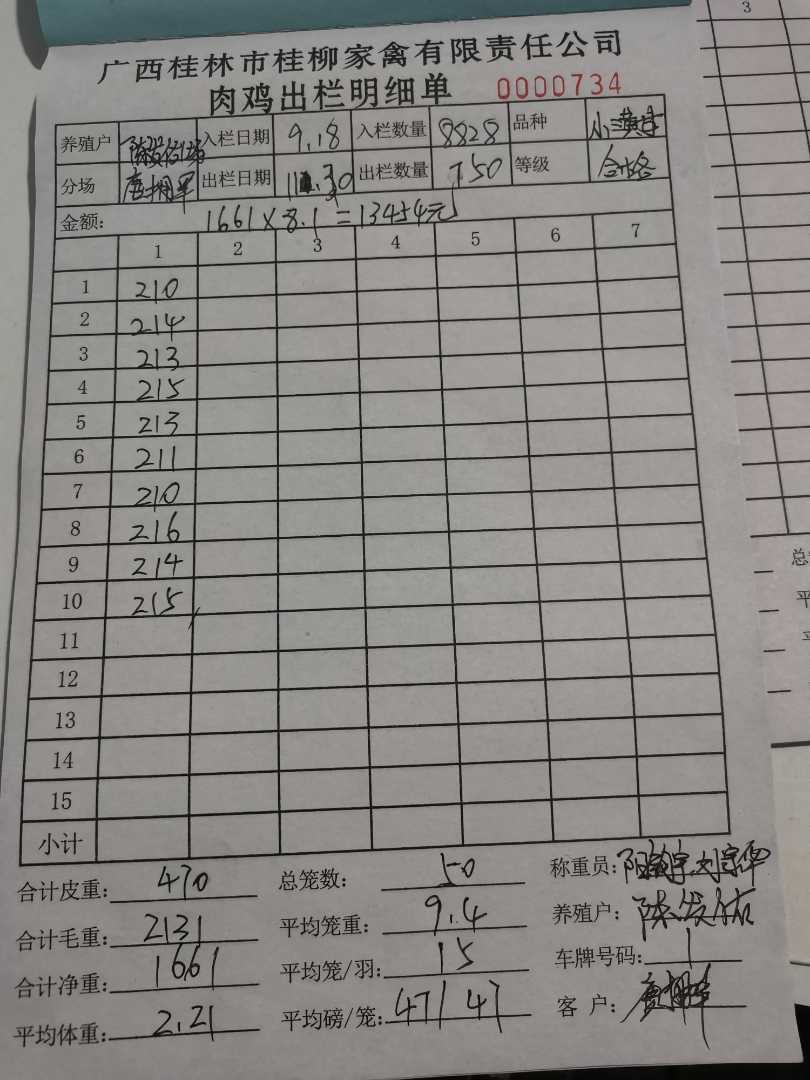 3
广西桂林市桂柳家禽有限责任公司
肉鸡出栏明细单 0000734
养殖户 陈发佑 入栏日期 9.18 入栏数量 8828 品种 小黄
分场 出栏日期 11.30 出栏数量 750 等级 合格
金额: 1661×8.1=13454元
1 2 3 4 5 6 7
1 210
2 214
3 213
4 215
5 213
6 211
7 210
8 216
9 214
10 215
11
12
13
14
15
小计
合计皮重: 470 总笼数: 50 称重员:
合计毛重: 2131 平均笼重: 9.4 养殖户: 陈发佑
合计净重: 1661 平均笼/羽: 15 车牌号码: 1
平均体重: 2.21 平均磅/笼: 47/47 客 户:
总
平